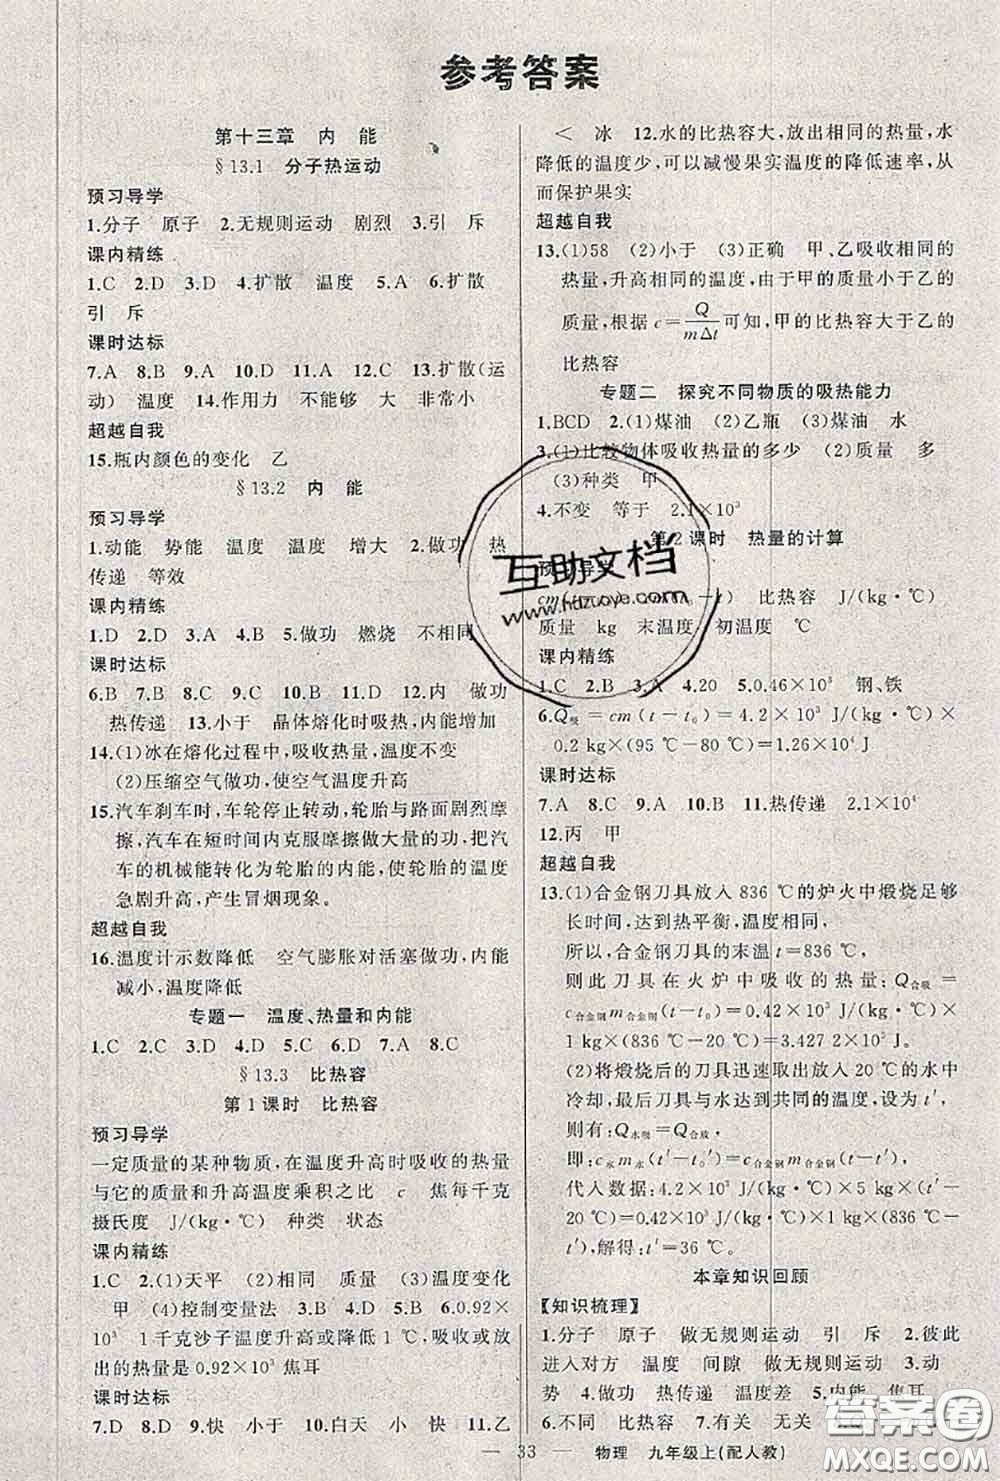 参考答案
第十三章　内　能
§13.1　分子热运动
预习导学
1.分子　原子　2.无规则运动　剧烈　3.引　斥
课内精练
1.C　2.D　3.D　4.扩散　温度　5.A　6.扩散
引　斥
课时达标
7.A　8.B　9.A　10.D　11.A　12.C　13.扩散(运
动)　温度　14.作用力　不能够　大　非常小
超越自我
15.瓶内颜色的变化　乙
§13.2　内　能
预习导学
1.动能　势能　温度　温度　增大　2.做功　热
传递　等效
课内精练
1.D　2.D　3.D　4.B　5.做功　燃烧　不相同
课时达标
6.B　7.B　8.C　9.C　10.B　11.C　12.内　做功
热传递　13.小于　晶体熔化时吸热,内能增加
14.(1)冰在熔化过程中,吸收热量,温度不变
(2)压缩空气做功,使空气温度升高
15.汽车刹车时,车轮停止转动,轮胎与路面剧烈摩
擦,汽车在短时间内克服摩擦做大量的功,把汽
车的机械能转化为轮胎的内能,使轮胎的温度
急剧升高,产生冒烟现象。
超越自我
16.温度计示数降低　空气膨胀对活塞做功,内能
减小,温度降低
专题一　温度、热量和内能
1.C　2.C　3.D　4.D　5.D　6.D　7.A　8.C
§13.3　比热容
第1课时　比热容
预习导学
一定质量的某种物质,在温度升高时吸收的热量
与它的质量和升高温度乘积之比　c　焦每千克
摄氏度　J/(kg·℃)　种类　状态
课内精练
1.C　2.(1)天平　(2)相同　质量　(3)温度变化
甲　(4)控制变量法　3.B　4.D　5.B　6.0.92×
10³　1千克沙子温度升高或降低1℃,吸收或放
出的热量是0.92×10³焦耳
课时达标
7.D　8.D　9.快　小于　10.白天　小　快　11.乙
<　冰　12.水的比热容大,放出相同的热量,水
降低的温度少,可以减慢果实温度的降低速率,从
而保护果实
超越自我
13.(1)58　(2)小于　(3)正确　甲、乙吸收相同的
热量,升高相同的温度,由于甲的质量小于乙的
质量,根据c=Q/mΔt可知,甲的比热容大于乙的
比热容
专题二　探究不同物质的吸热能力
1.BCD　2.(1)煤油　(2)乙瓶　(3)煤油　水
3.(1)比较物体吸收热量的多少　(2)质量　多
(3)种类　甲
4.不变　等于　2.1×10³
第2课时　热量的计算
预习导学
cm(　−t)　比热容　J/(kg·℃)
质量　kg　末温度　初温度　℃
课内精练
1.C　2.B　3.A　4.20　5.0.46×10³　钢、铁
6.Q吸=cm(t−t₀)=4.2×10³ J/(kg·℃)×
0.2 kg×(95 ℃−80 ℃)=1.26×10⁴ J
课时达标
7.A　8.C　9.A　10.B　11.热传递　2.1×10⁴
12.丙　甲
超越自我
13.(1)合金钢刀具放入836 ℃的炉火中煅烧足够
长时间,达到热平衡,温度相同,
所以,合金钢刀具的末温t=836 ℃,
则此刀具在火炉中吸收的热量:Q合吸=
c合金钢m合金钢(t−t₀)=0.42×10³ J/(kg·℃)×
1 kg×(836 ℃−20 ℃)=3.427 2×10⁵ J。
(2)将煅烧后的刀具迅速取出放入20 ℃的水中
冷却,最后刀具与水达到共同的温度,设为t′,
则有:Q水吸=Q合放,
即:c水m水(t′−t₀)=c合金钢m合金钢(t−t′),
代入数据:4.2×10³ J/(kg·℃)×5 kg×(t′−
20 ℃)=0.42×10³ J/(kg·℃)×1 kg×(836 ℃−
t′),解得:t′=36 ℃。
本章知识回顾
【知识梳理】
1.分子　原子　做无规则运动　引　斥　2.彼此
进入对方　温度　间隙　做无规则运动　3.动
势　4.做功　热传递　温度差　5.内能　焦耳
6.不同　比热容　7.有关　无关
— 33 —　物理　九年级上(配人教)
互助文档
www.hdzuoye.com
答案圈
MXQE.COM